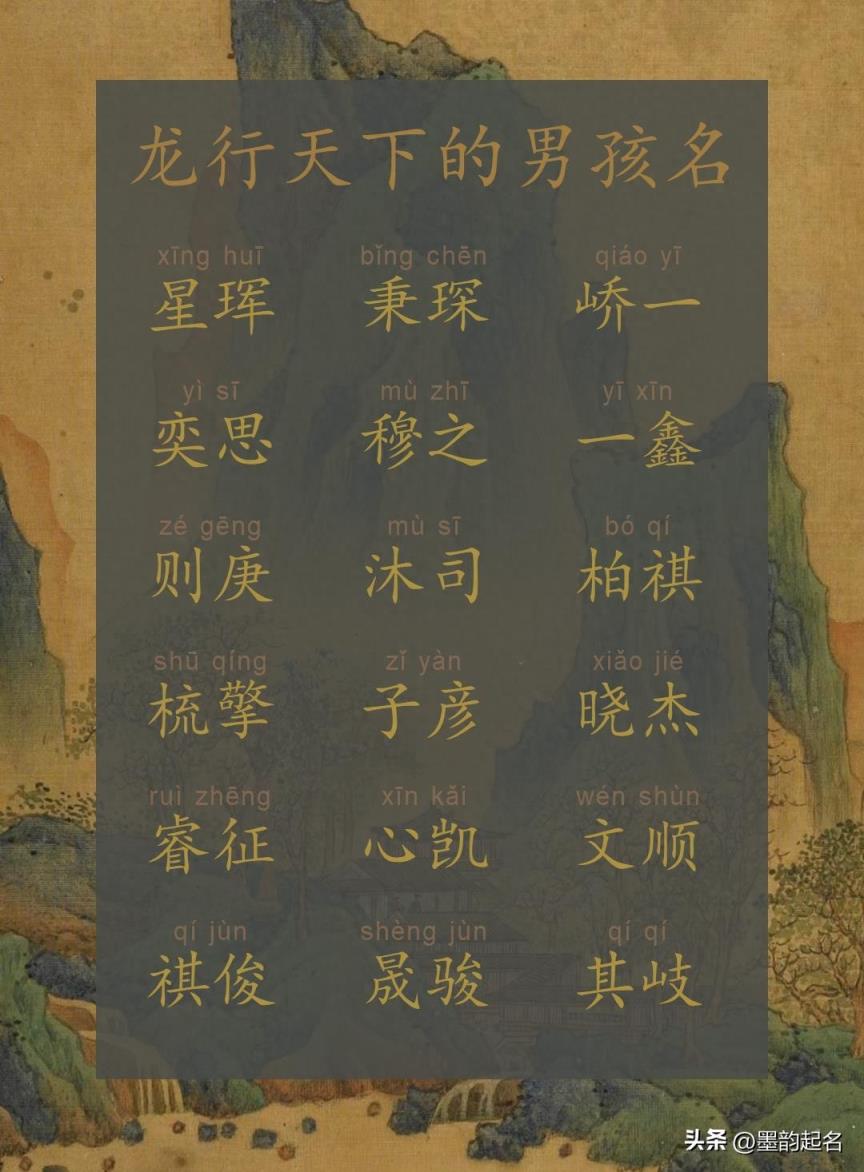 龙行天下的男孩名
xīng huī bǐng chēn qiáo yī
星珲 秉琛 峤一
yì sī mù zhī yī xīn
奕思 穆之 一鑫
zé gēng mù sī bó qí
则庚 沐司 柏祺
shū qíng zǐ yàn xiǎo jié
梳擎 子彦 晓杰
ruì zhēng xīn kǎi wén shùn
睿征 心凯 文顺
qí jùn shèng jùn qí qí
祺俊 晟骏 其岐
头条 @墨韵起名